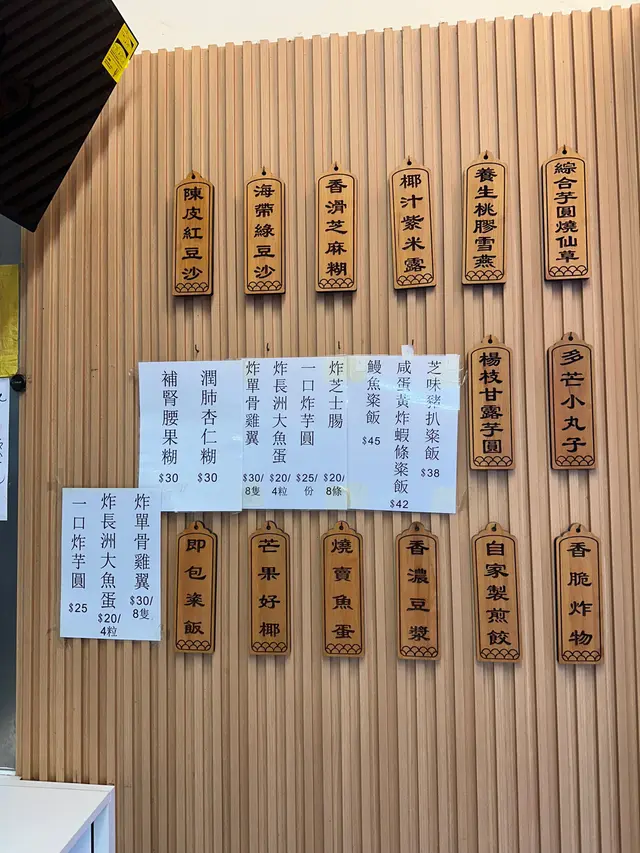 綜合芋圓燒仙草
養生桃膠雪燕
椰汁紫米露
香滑芝麻糊
海帶綠豆沙
陳皮紅豆沙
多芒小丸子
楊枝甘露芋圓
芝味豬扒粢飯 $38
咸蛋黃炸蝦條粢飯 $42
鰻魚粢飯 $45
炸芝士腸 $20/8條
一口炸芋圓 $25/份
炸長洲大魚蛋 $20/4粒
炸單骨雞翼 $30/8隻
潤肺杏仁糊 $30
補腎腰果糊 $30
香脆炸物
自家製煎餃
香濃豆漿
燒賣魚蛋
芒果好椰
即包粢飯
炸單骨雞翼 $30/8隻
炸長洲大魚蛋 $20/4粒
一口炸芋圓 $25